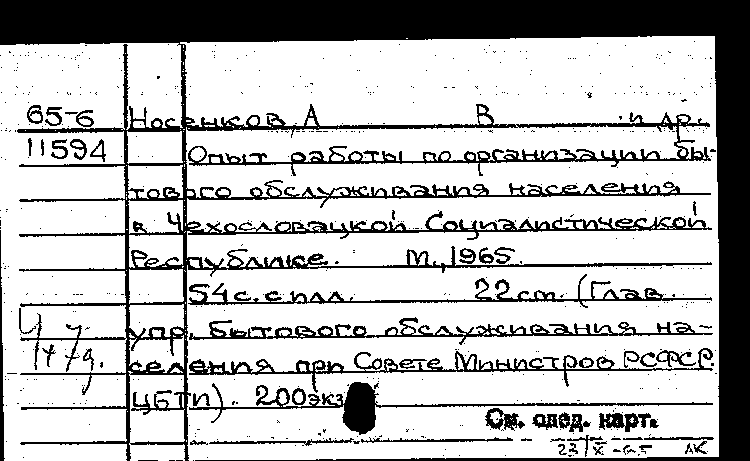 65-6 Носенков, А В и др.
11594 Опыт работы по организации бы-
тового обслуживания населения
в Чехословацкой Социалистической
Республике. М., 1965.
54 с. с илл. 22 см. (Глав.
упр. бытового обслуживания на-
селения при Совете Министров РСФСР.
ЦБТИ). 200 экз
См. след. карт.
23/X-65 ЛК